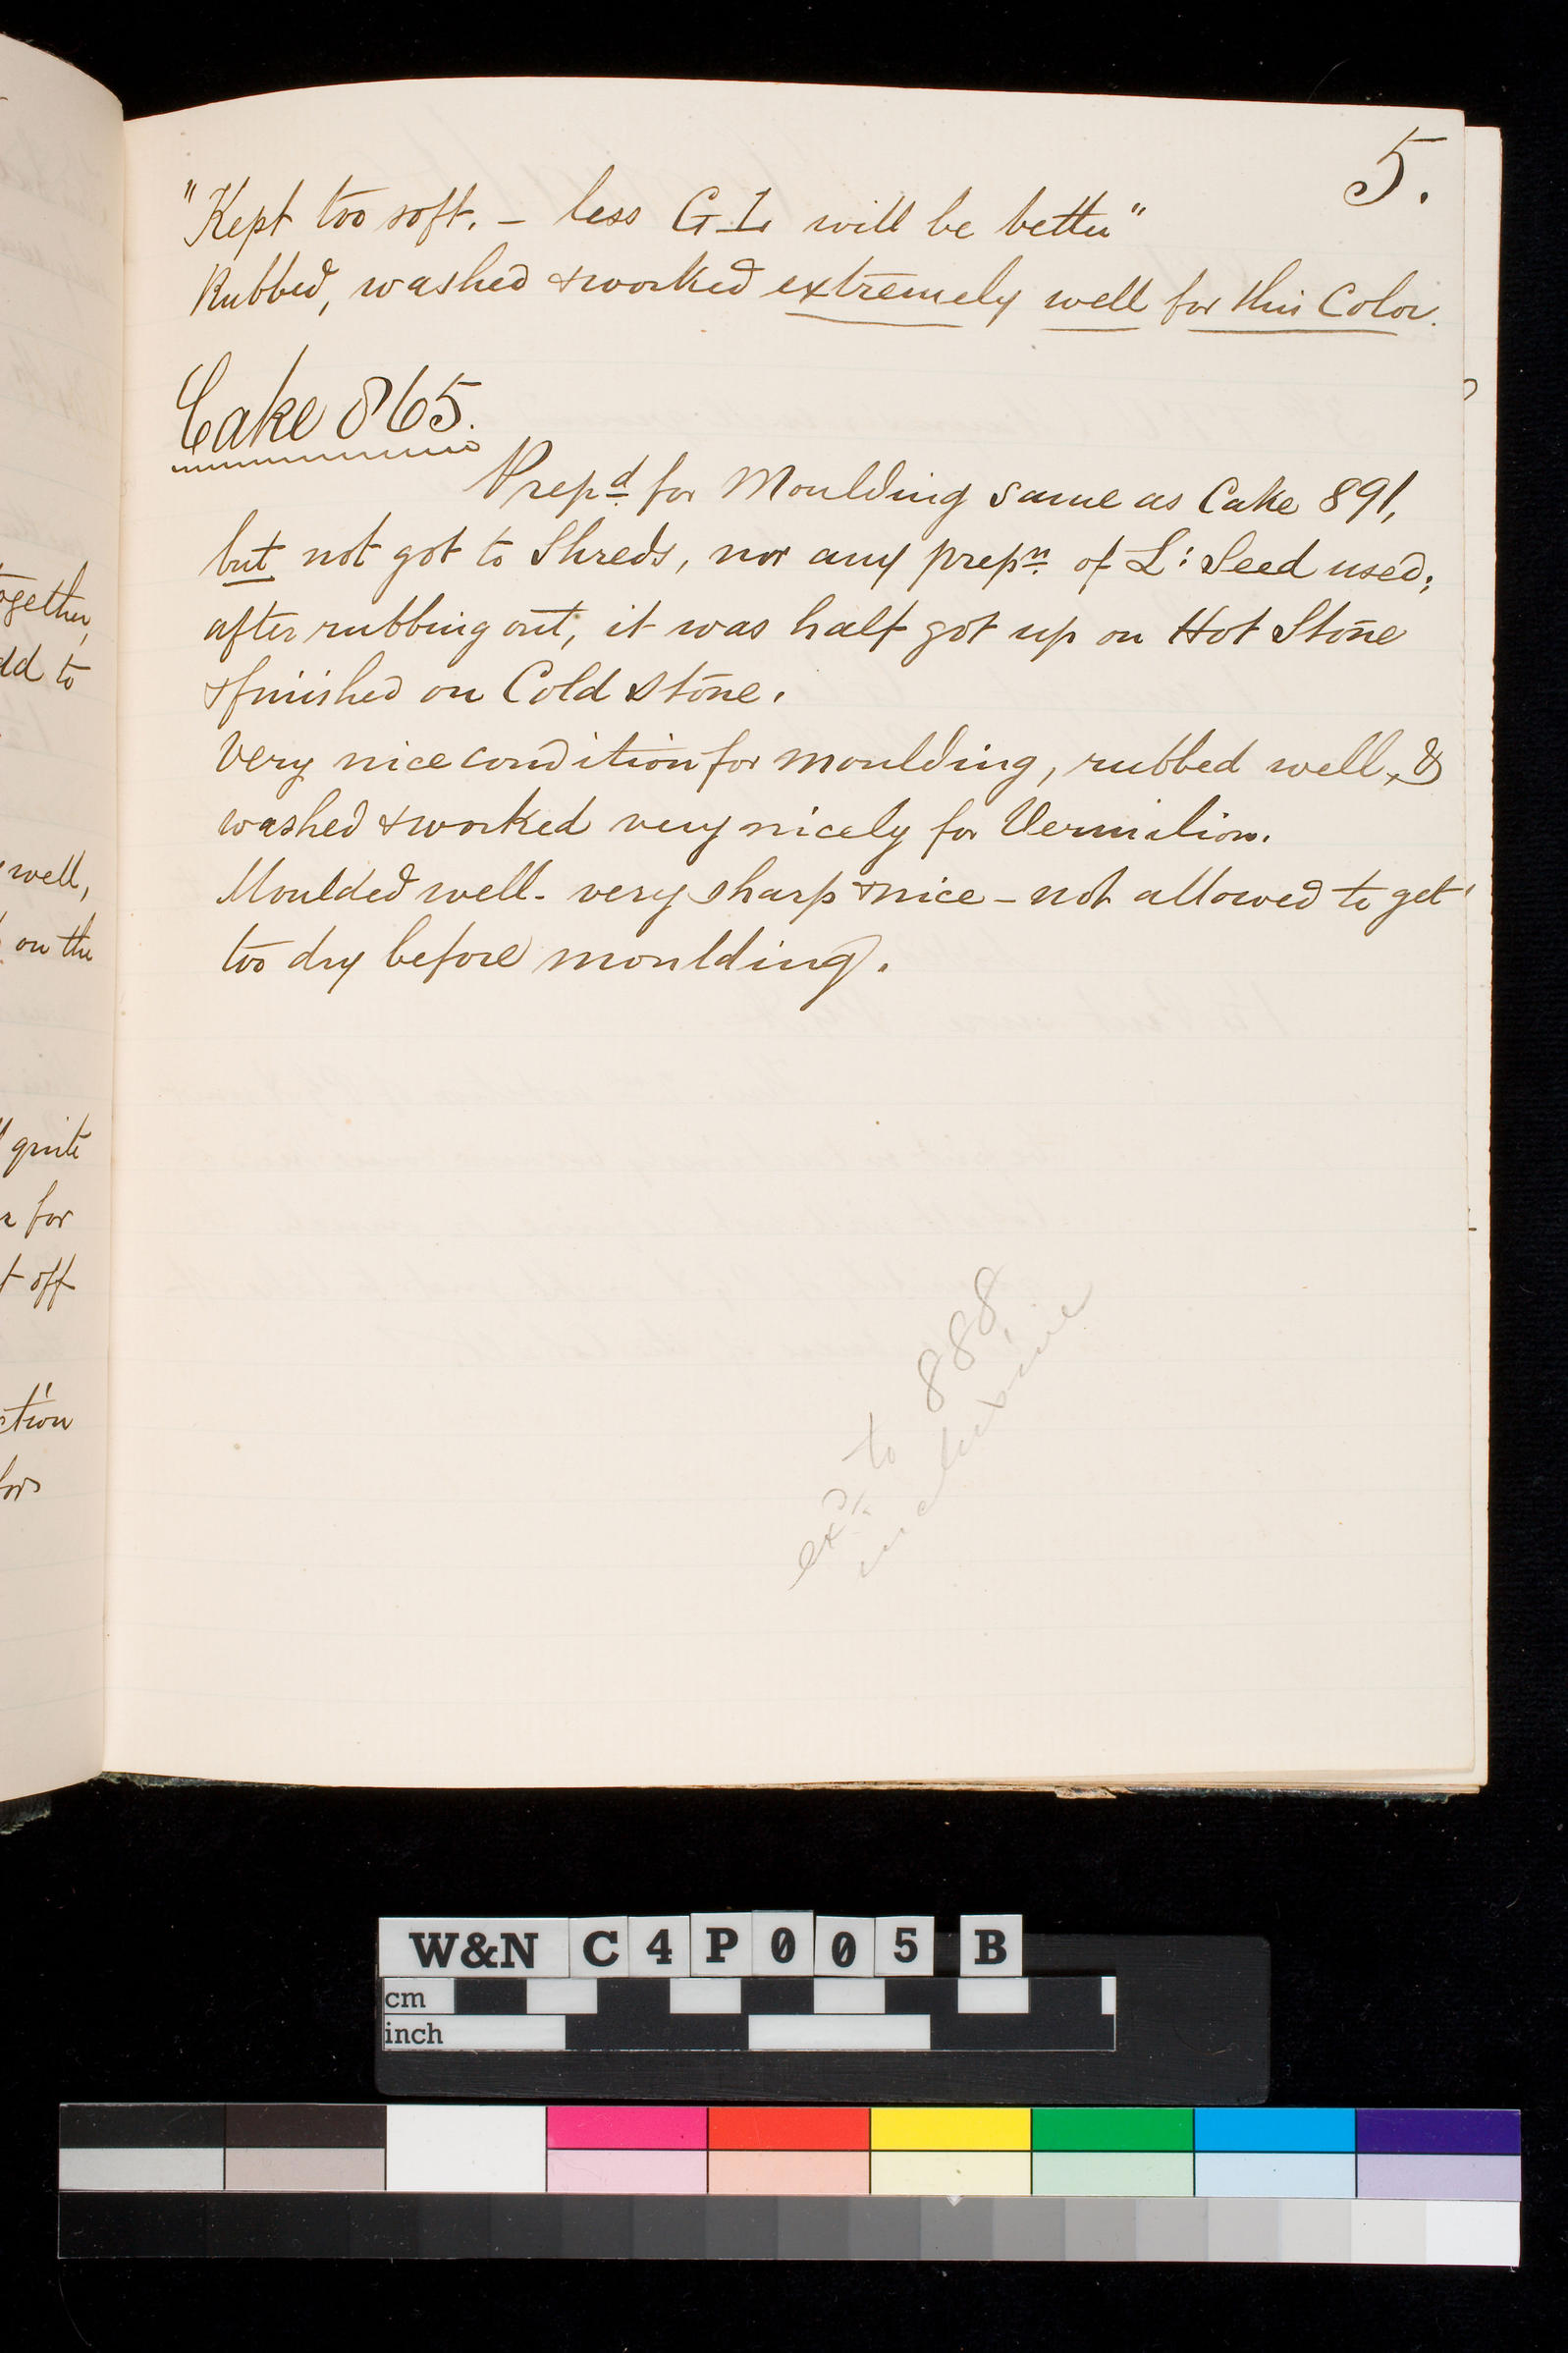 5.
"Kept too soft. – less G L will be better"
Rubbed, washed & worked extremely well for this Color.
Cake 865.
Prepd. for Moulding same as Cake 891,
but not got to Shreds, nor any prepn. of L: Seed used;
after rubbing out, it was half got up on Hot Stone
& finished on Cold stone.
Very nice condition for moulding, rubbed well, &
washed & worked very nicely for Vermilion.
Moulded well – very sharp & nice – not allowed to get
too dry before moulding.
exd. to 888
ogether,
dd to
well,
on the
quite
for
t off
ction
for
W&N C4P005 B
cm
inch